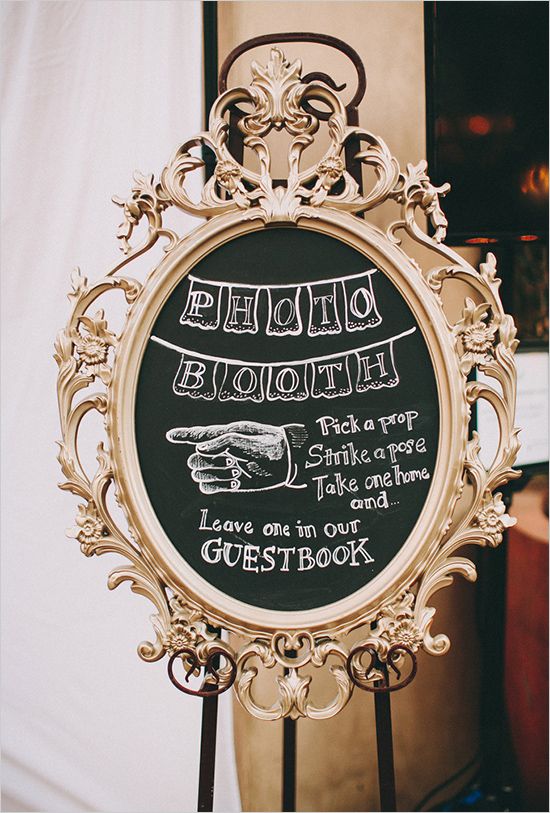 PHOTO
BOOTH
Pick a prop
Strike a pose
Take one home
and...
Leave one in our
GUESTBOOK